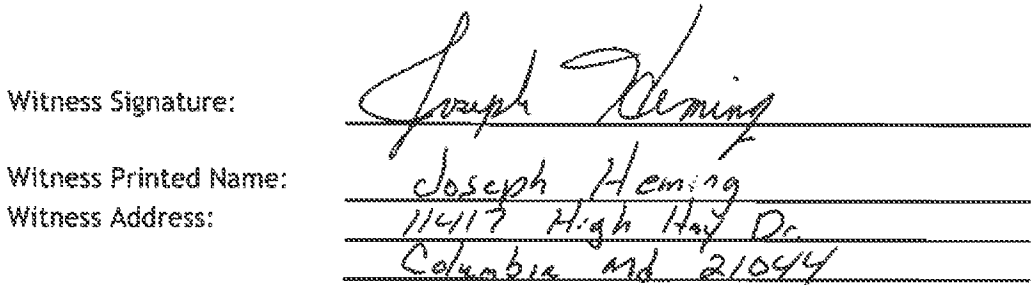 Witness Signature: Joseph Heming
Witness Printed Name: Joseph Heming
Witness Address: 11417 High Hay Dr.
Columbia Md 21044